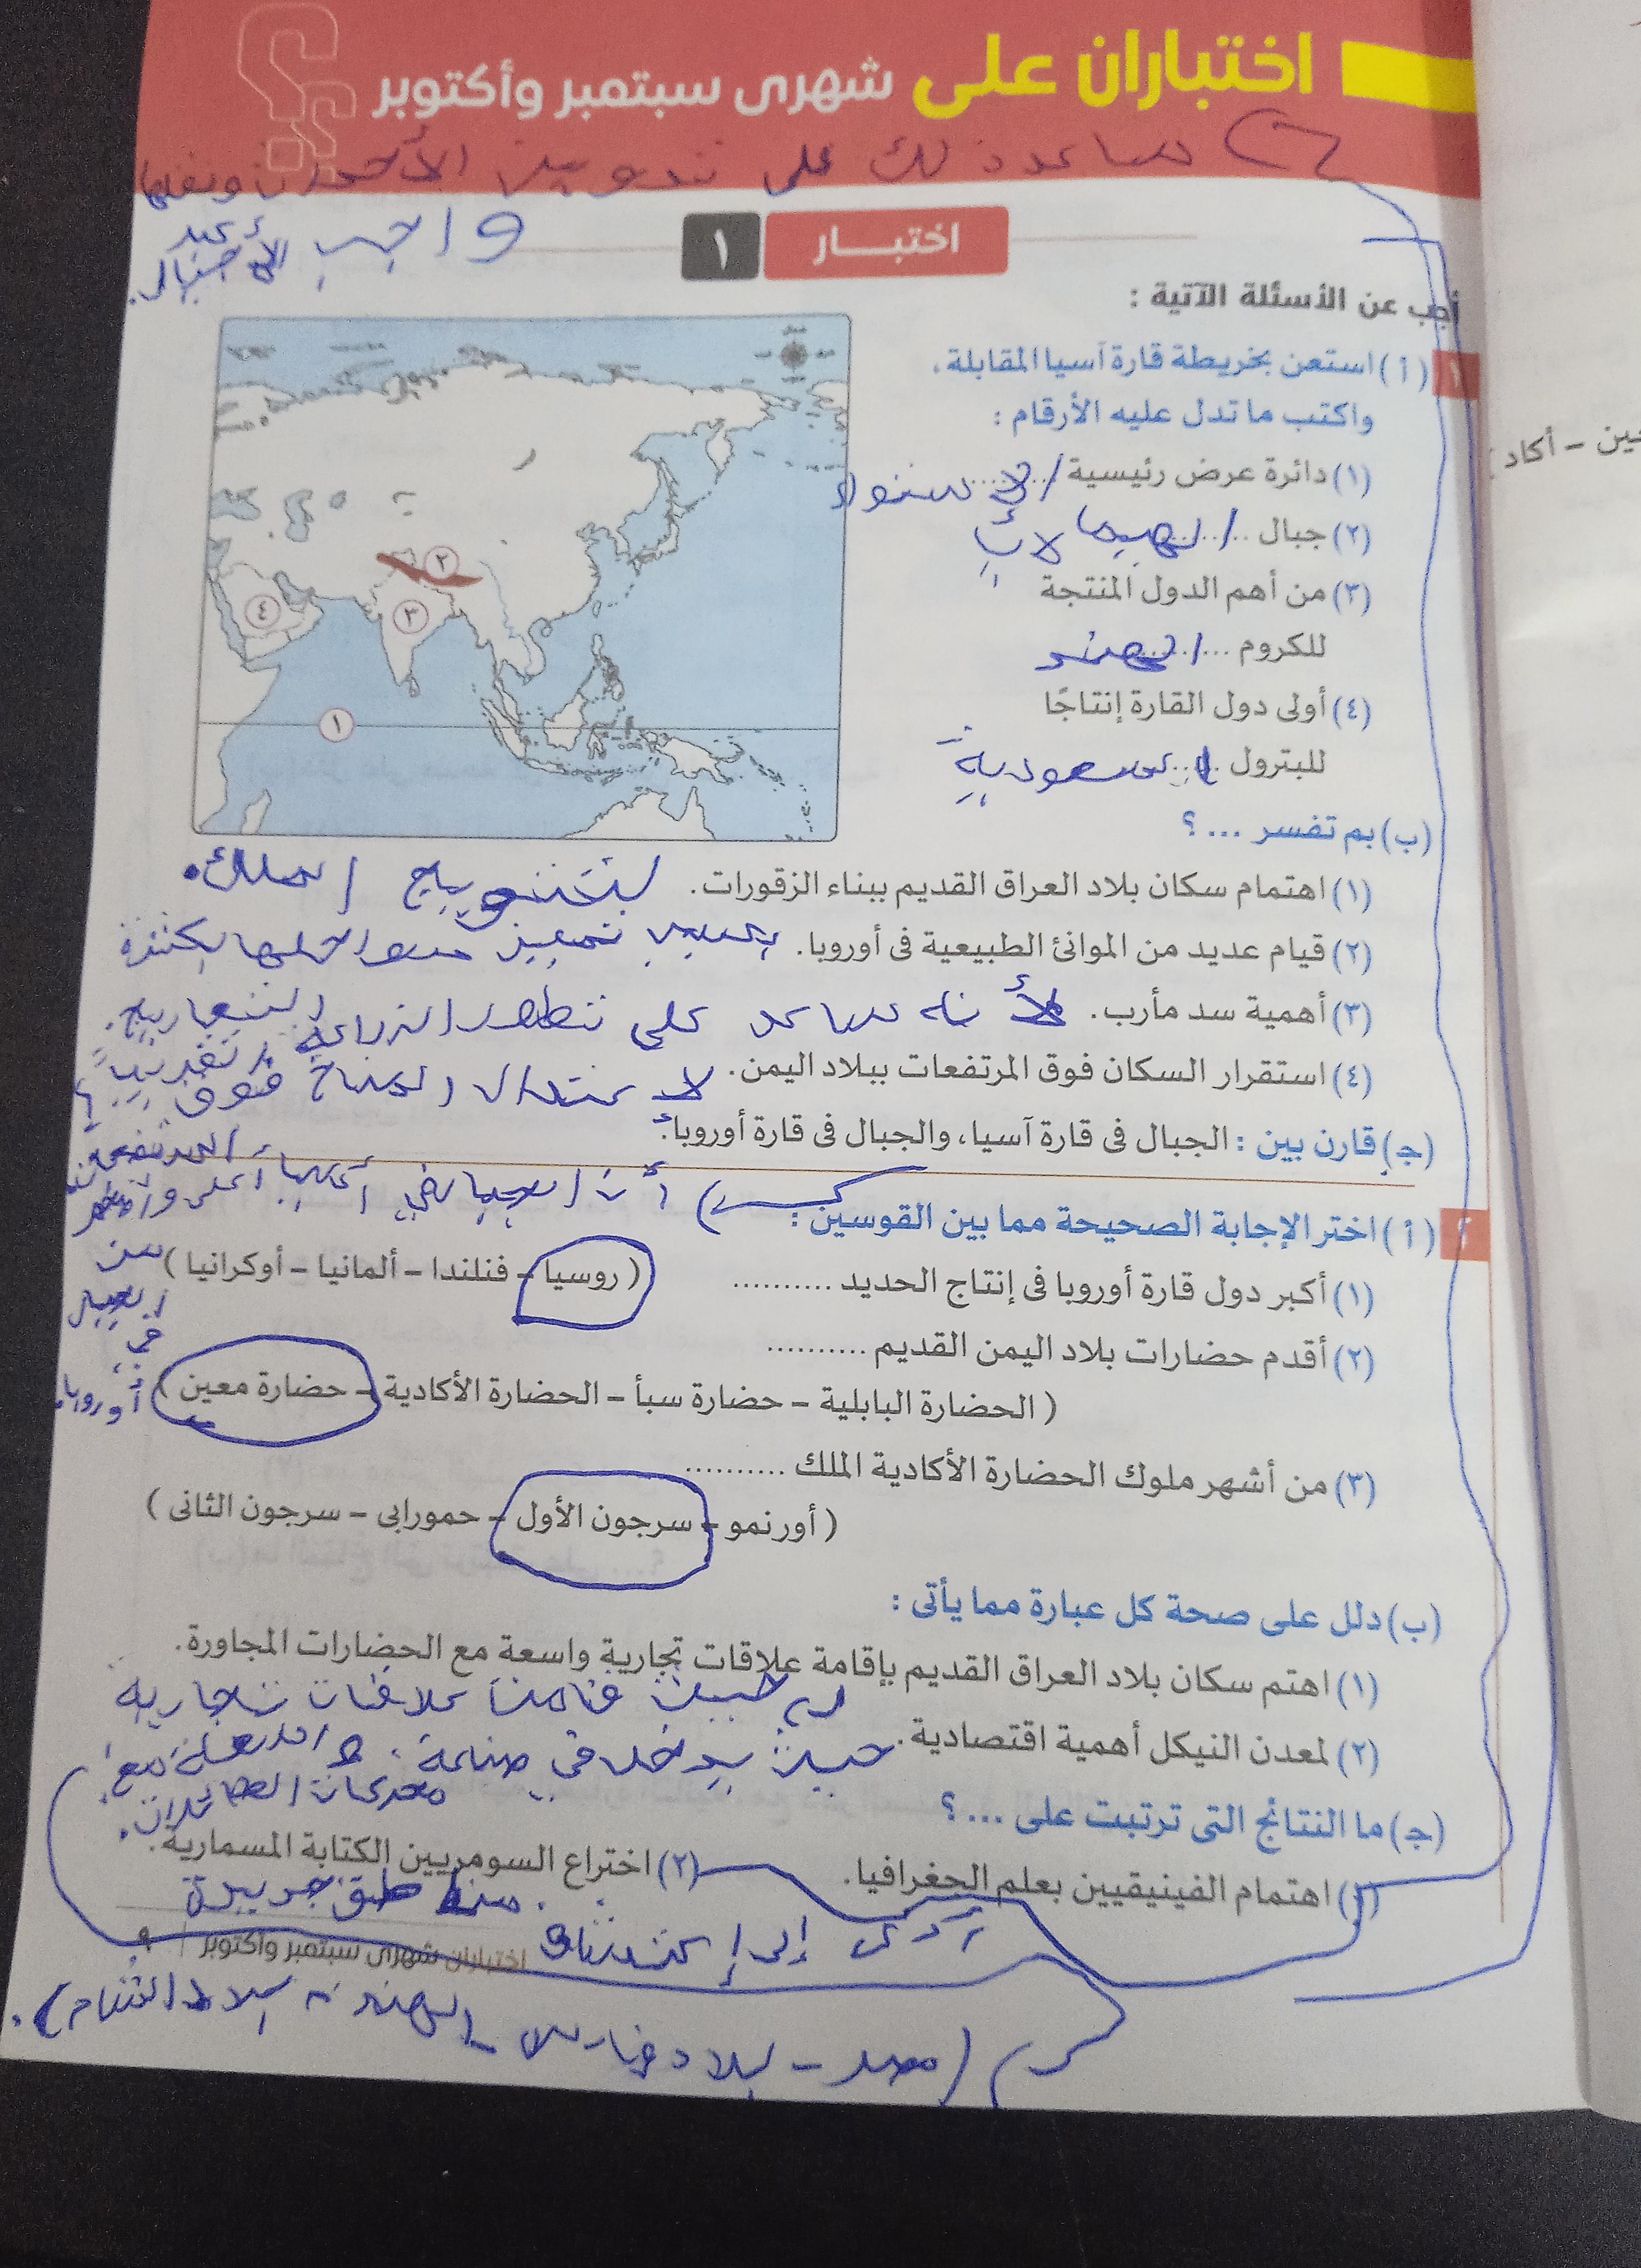 اختباران على شهرى سبتمبر وأكتوبر
ساعد ذلك على تدوين الأحداث ونقلها
عبر الأجيال.
واجب
اختبـــار ١
أجب عن الأسئلة الآتية :
١ (أ) استعن بخريطة قارة آسيا المقابلة،
واكتب ما تدل عليه الأرقام :
(١) دائرة عرض رئيسية الاستواء
(٢) جبال الهيمالايا
(٣) من أهم الدول المنتجة
للكروم الهند
(٤) أولى دول القارة إنتاجًا
للبترول السعودية
شمال
٢
٣
٤
١
(ب) بم تفسر ... ؟
(١) اهتمام سكان بلاد العراق القديم ببناء الزقورات. لتتويج الملك.
(٢) قيام عديد من الموانئ الطبيعية فى أوروبا. بسبب تميز سواحلها بكثرة
التعاريج.
(٣) أهمية سد مأرب. لأنه ساعد على تطور الزراعة
(٤) استقرار السكان فوق المرتفعات ببلاد اليمن. لاعتدال المناخ فوق
المرتفعة
(ج) قارن بين : الجبال فى قارة آسيا، والجبال فى قارة أوروبا.
أن الجبال في آسيا أعلى
من
الجبال
في
أوروبا.
٢ (أ) اختر الإجابة الصحيحة مما بين القوسين :
(١) أكبر دول قارة أوروبا فى إنتاج الحديد .......... ( روسيا – فنلندا – ألمانيا – أوكرانيا )
(٢) أقدم حضارات بلاد اليمن القديم ..........
( الحضارة البابلية – حضارة سبأ – الحضارة الأكادية – حضارة معين )
(٣) من أشهر ملوك الحضارة الأكادية الملك ..........
( أورنمو – سرجون الأول – حمورابى – سرجون الثانى )
(ب) دلل على صحة كل عبارة مما يأتى :
(١) اهتم سكان بلاد العراق القديم بإقامة علاقات تجارية واسعة مع الحضارات المجاورة.
حيث قامت علاقات تجارية
مع
(٢) لمعدن النيكل أهمية اقتصادية. حيث يدخل في صناعة
محركات الطائرات.
(ج) ما النتائج التى ترتبت على ... ؟
(١) اهتمام الفينيقيين بعلم الجغرافيا.
(٢) اختراع السومريين الكتابة المسمارية.
أدى إلى إكتشاف مناطق جديدة
اختباران شهرى سبتمبر وأكتوبر ٩
(مصر – بلاد فارس – الهند – بلاد الشام).
ين – أكاد